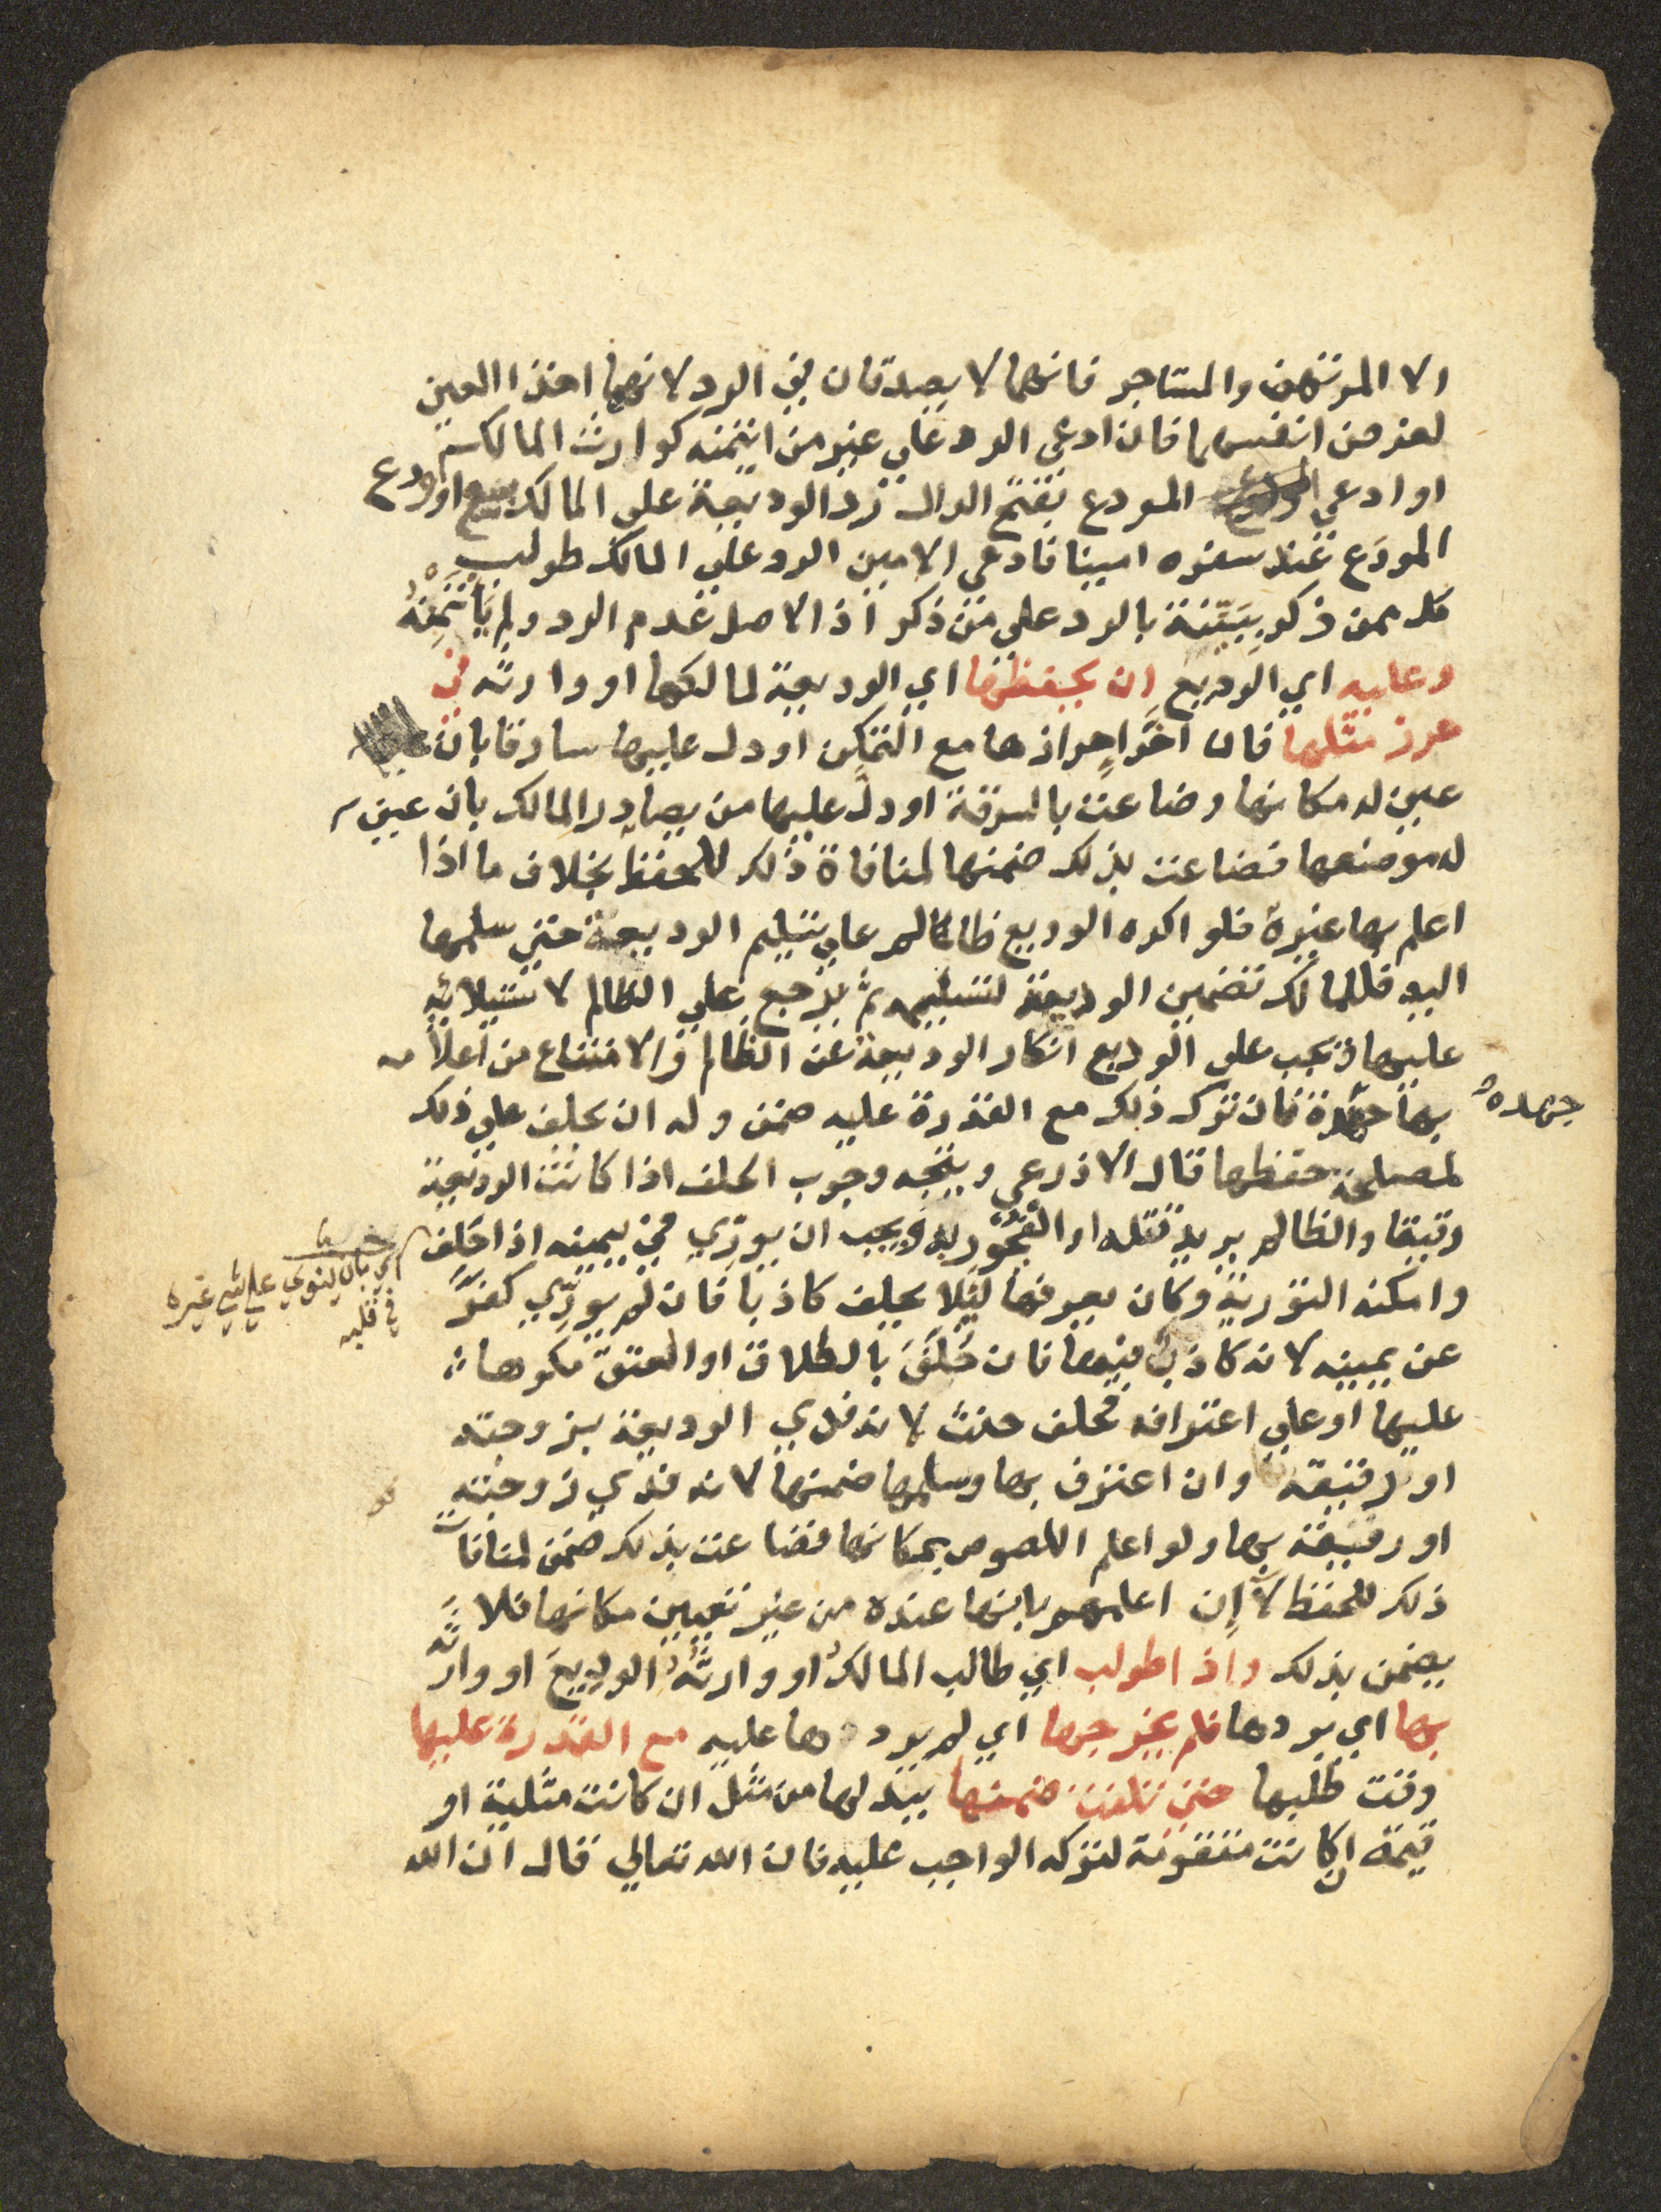 الا المرتهن والمستاجر فانهما لا يصدقان في الرد لانهما اخذا العين
لغرض انفسهما فان ادعي الرد علي غير من ائتمنه كوارث المالك
او ادعي المودع بفتح الدال رد الوديعة على المالك او اودع
المودَع عند سفره امينا فادعي الامين الرد علي المالك طولب
كل ممن ذكر بِبَيّنة بالرد علي من ذكر اذ الاصل عدم الرد ولم يأتمنه
وعليه اي الوديع ان يحفظها اي الوديعة لمالكها او وارثه في
حرز مثلها فان اخّر احرازها مع التمكن او دل عليها سارقا بان
عين له مكانها وضاعت بالسرقة او دلّ عليها من يصادر المالك بان عين
له موضعها فضاعت بذلك ضمنها لمنافاة ذلك للحفظ بخلاف ما اذا
اعلم بها غيره فلو اكره الوديع ظالم علي تسليم الوديعة حتي سلمها
اليه فللمالك تضمين الوديعة لتسليمه ثم يرجع علي الظالم لاستيلائه
عليها ويجب على الوديع انكار الوديعة عن الظالم والامتناع من اعلامه
بها جهده فان ترك ذلك مع القدرة عليه ضمن وله ان يحلف علي ذلك
جهده
لمصلحة حفظها قال الاذرعي ويتجه وجوب الحلف اذا كانت الوديعة
رقيقا والظالم يريد قتله او الفجور به ويجب ان يورّي في يمينه اذا حَلِف
اي بان ينوي علي شي غيره
في قلبه
وامكنه التورية وكان يعرفها ليلا يحلف كاذبا فان لم يورّي كفرَّ
عن يمينه لانه كاذب فيها فان حَلَف بالطلاق او العتق مكرها
عليها او علي اعترافه فحلف حنث لانه فدي الوديعة بزوجته
او رقيقه وان اعترف بها وسلمها ضمنها لانه فدي زوجته
او رقيقه بها ولو اعلم اللصوص بمكانها فضاعت بذلك ضمن لمنافات
ذلك للحفظ لا إن اعلمهم بانها عنده من غير تعيين مكانها فلا
يضمن بذلك واذا طولب اي طالب المالكُ او وارثُهُ الوديعَ او وارثَه
بها اي بردها فلم يخرجها اي لم يردها عليه مع القدرة عليها
وقت طلبها حتي تلفت ضمنها ببدلها من مثل ان كانت مثلية او
قيمة ان كانت متقومة لتركه الواجب عليه فان الله تعالي قال ان الله